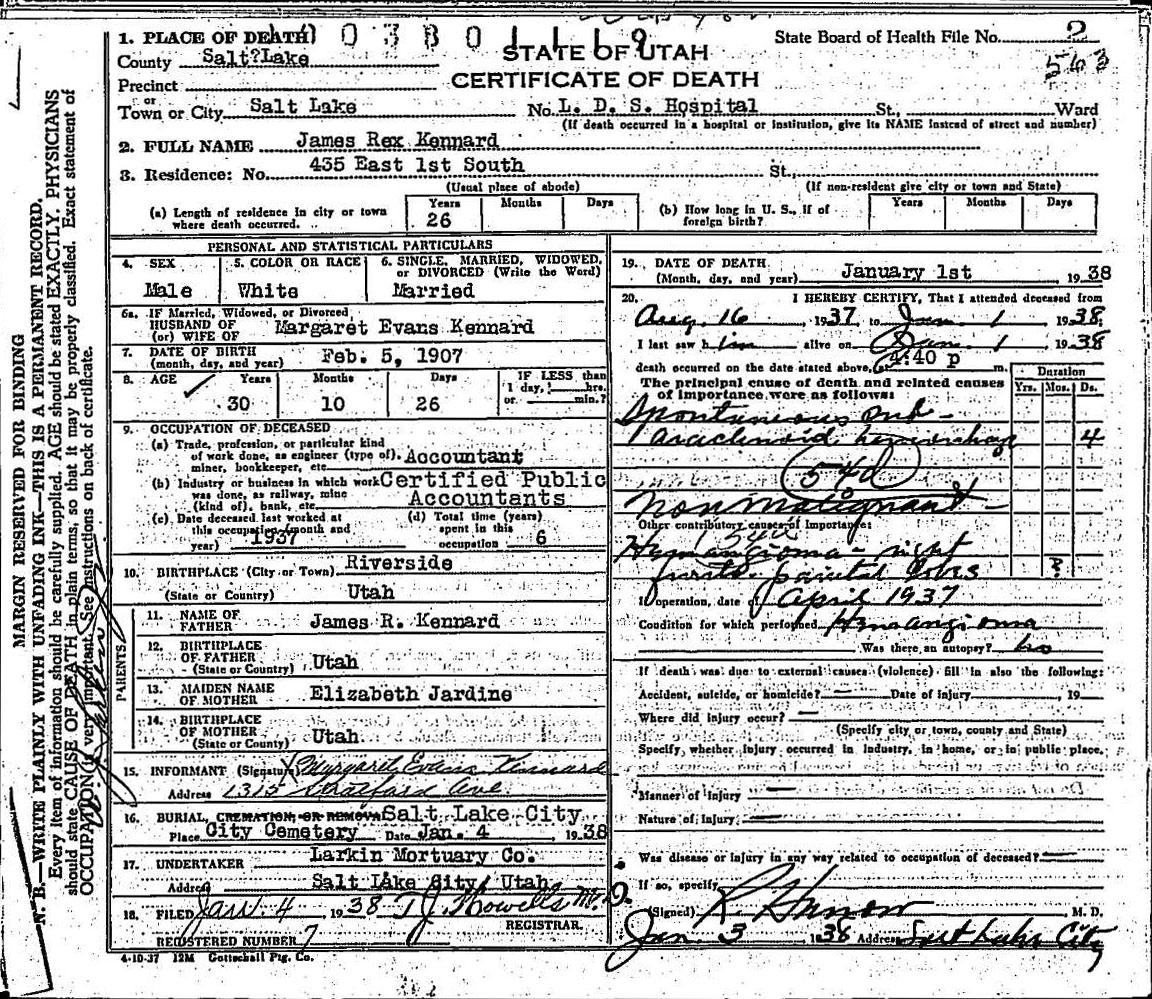 1. PLACE OF DEATH 0380119
State Board of Health File No. 2
563
County Salt?Lake
STATE OF UTAH
CERTIFICATE OF DEATH
Precinct
or
Town or City Salt Lake No. L. D. S. Hospital St., Ward
(If death occurred in a hospital or institution, give its NAME instead of street and number)
2. FULL NAME James Rex Kennard
3. Residence: No. 435 East 1st South St.,
(Usual place of abode) (If non-resident give city or town and State)
(a) Length of residence in city or town where death occurred. Years 26 Months Days
(b) How long in U. S., if of foreign birth? Years Months Days
MARGIN RESERVED FOR BINDING
N. B.—WRITE PLAINLY WITH UNFADING INK—THIS IS A PERMANENT RECORD.
Every item of information should be carefully supplied. AGE should be stated EXACTLY. PHYSICIANS
should state CAUSE OF DEATH in plain terms, so that it may be properly classified. Exact statement of
OCCUPATION is very important. See instructions on back of certificate.
PERSONAL AND STATISTICAL PARTICULARS
4. SEX 5. COLOR OR RACE 6. SINGLE, MARRIED, WIDOWED, or DIVORCED (Write the Word)
Male White Married
6a. IF Married, Widowed, or Divorced
HUSBAND OF
(or) WIFE OF Margaret Evans Kennard
7. DATE OF BIRTH
(month, day, and year) Feb. 5, 1907
8. AGE Years Months Days IF LESS than
1 day, hrs.
or min.?
30 10 26
9. OCCUPATION OF DECEASED
(a) Trade, profession, or particular kind
of work done, as engineer (type of). Accountant
miner, bookkeeper, etc.
(b) Industry or business in which work Certified Public
was done, as railway, mine Accountants
(kind of). bank, etc.
(c) Date deceased last worked at (d) Total time (years)
this occupation (month and spent in this
year) 1937 occupation 6
10. BIRTHPLACE (City or Town) Riverside
(State or Country) Utah
PARENTS
11. NAME OF
FATHER James R. Kennard
12. BIRTHPLACE
OF FATHER Utah
(State or Country)
13. MAIDEN NAME
OF MOTHER Elizabeth Jardine
14. BIRTHPLACE
OF MOTHER Utah
(State or Country)
15. INFORMANT (Signature) Margaret Evans Kennard
Address 1315 Stratford Ave
16. BURIAL, CREMATION, OR REMOVAL Salt Lake City
Place City Cemetery Date Jan. 4 1938
17. UNDERTAKER Larkin Mortuary Co.
Address Salt Lake City, Utah
18. FILED Jan. 4 1938 T J Howells M.D.
REGISTRAR.
REGISTERED NUMBER 7
4-10-37 12M Gottschall Ptg. Co.
19. DATE OF DEATH
(Month, day, and year) January 1st 1938
20. I HEREBY CERTIFY, That I attended deceased from
Aug. 16, 1937, to Jan. 1 1938
I last saw him alive on Jan. 1 1938
4:40 p
death occurred on the date stated above, m.
Duration
The principal cause of death and related causes
of importance were as follows: Yrs. Mos. Ds.
Spontaneous sub-
arachnoid hemorrhage 4
54d
Non malignant
Other contributory causes of importance:
54d
Hemangioma - right
fronto-parietal lobes ?
If operation, date of April 1937
Condition for which performed Hemangioma
Was there an autopsy? no
If death was due to external causes (violence) fill in also the following:
Accident, suicide, or homicide? — Date of injury, 19
Where did injury occur? —
(Specify city or town, county and State)
Specify, whether injury occurred in industry, in home, or in public place.
Manner of injury —
Nature of injury —
Was disease or injury in any way related to occupation of deceased? —
If so, specify
(Signed) M. D.
Jan. 3 1938 Address Salt Lake City